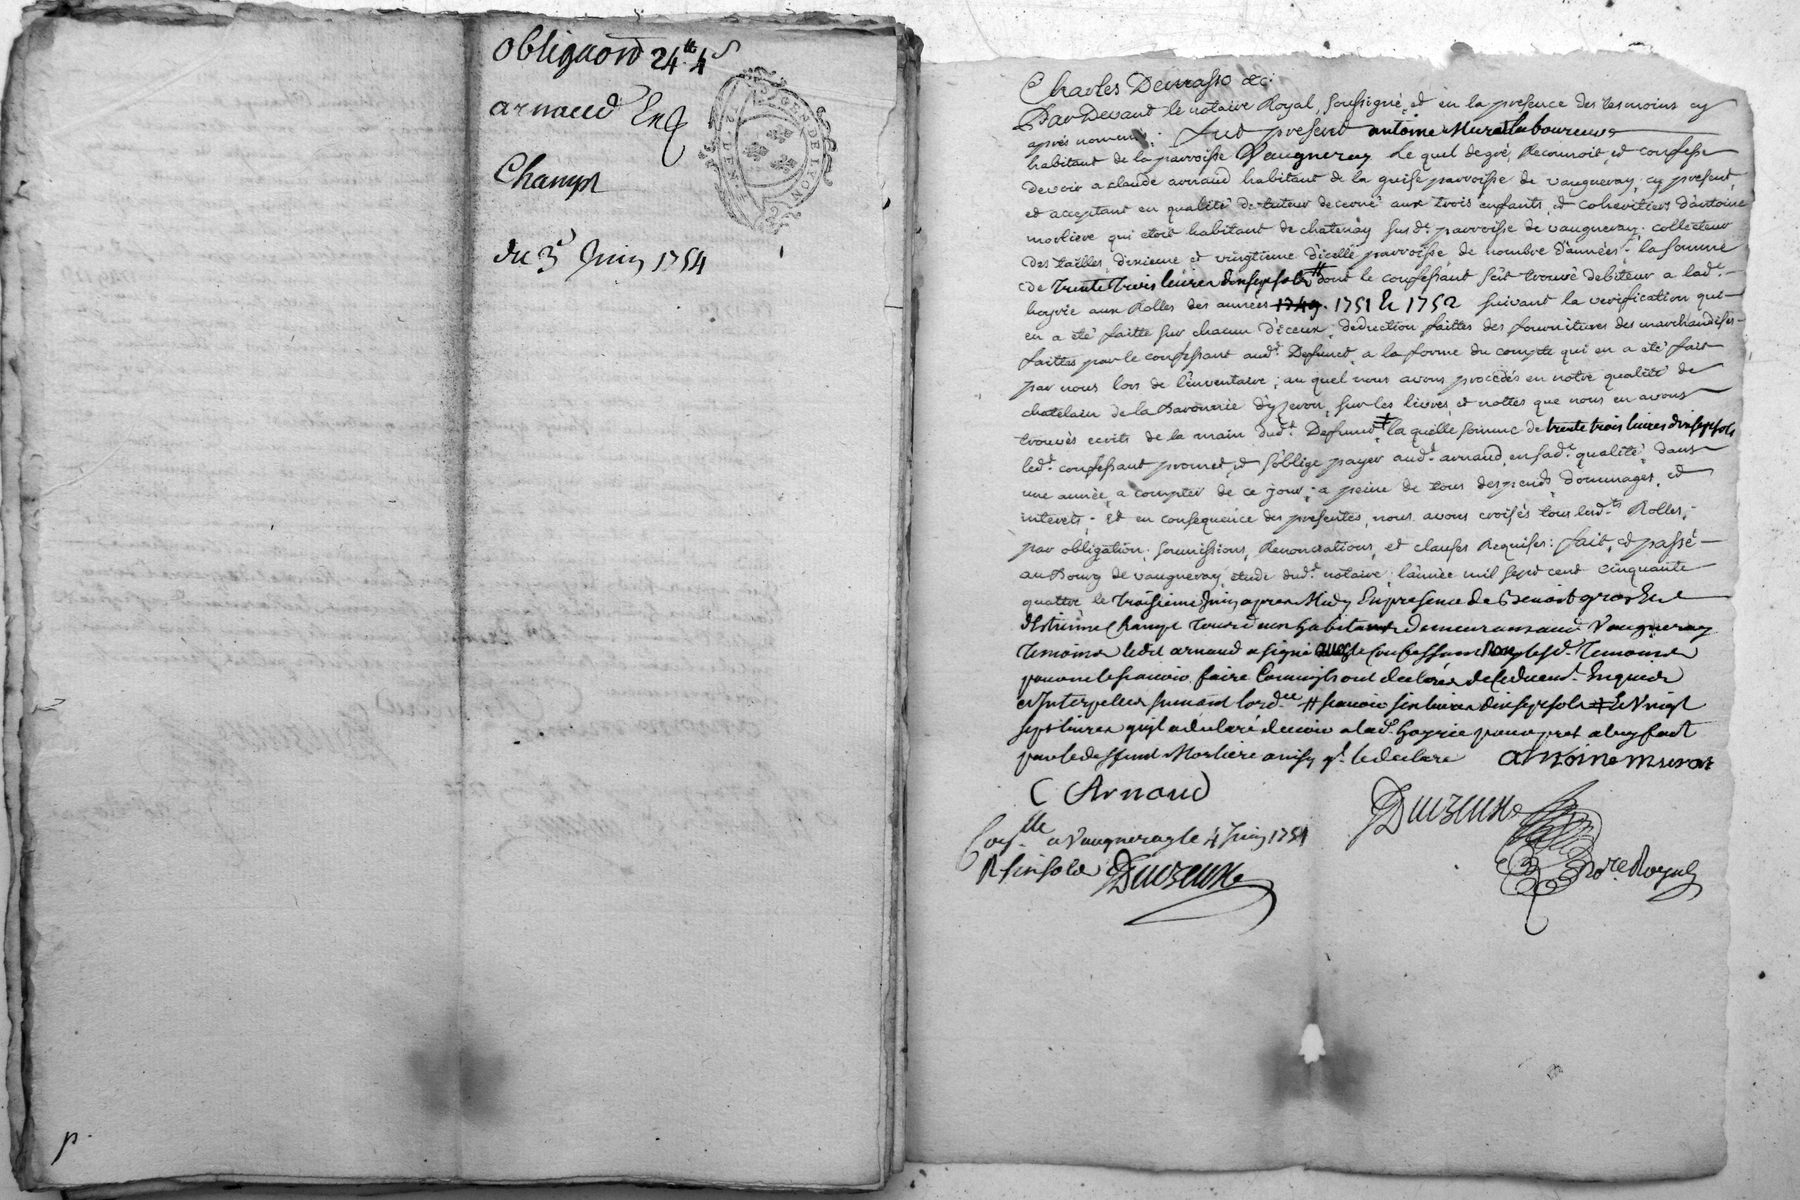 obligaõn 24tt 4s
arnaud Enq
GEN. DE LYON
Champt
du 3e Juin 1754
p.
Charles Demasso &c:
Par Devant le notaire Royal, soussigné, et en la presence des tesmoins cy
apres nommés; fut present antoine Murat laboureur
habitant de la parroisse Vaugneray Le quel de gré, Reconnoit, et confesse
devoir a claude arnaud habitant de la parroisse de vaugneray, cy present,
et acceptant en qualité de tuteur decerné aux trois enfants, et coheritiers d'antoine
morliere qui etoit habitant de chatenay susd.t parroisse de vaugneray, collecteur
des tailles, dixieme et vingtieme d'icelle parroisse, de nombre d'années; la somme
de trente trois livres dix sept sols # dont le confessant s'est trouvé debiteur a lad.e
hoyrie aux Rolles des années 1749. 1751 & 1752 suivant la verification qui
en a eté faitte sur chacun d'iceux; deduction faittes des fournitures des marchandises
faittes par le confessant aud.t Defunct, a la forme du compte qui en a eté fait
par nous lors de l'inventaire; au quel nous avons procedés en notre qualité de
chatelain de la Baronnie d'yzeron, sur les livres, et nottes que nous en avons
trouvés ecrits de la main dud.t Defunct ‡ la quelle somme de trente trois livres dix sept sols
led.t confessant promet, et s'oblige payer aud.t arnaud, en sad.e qualité, dans
une année, a compter de ce jour; a peine de tous despends, dommages, et
interets; Et en consequence des presentes, nous avons croisés tous lesd.ts Rolles;
par obligation, soumissions, Renonciations, et clauses Requises: fait, et passé
au Bourg de vaugneray, etude dud.t notaire, l'année mil sept cent cinquante
quattre le troisieme Juin apres Midy En presence de Benoit gros Et
d'Estienne Champt habitants demeurans aud.t Vaugneray
temoins ledit arnaud a signé avec le Confessant non lesd.t temoins
pour ne le scavoir faire Comme ils ont declarés de ce duem.t Enquis
et Interpellés suivant lord.ce # scavoir six livres dix sept sols ‡ & Vingt
sept livres qu'il a declaré devoir a lad. hoyrie pour pret a luy fait
par le deffunt Morliere ainsy q.l le declare antoine murat
C Arnaud
Duzeune
Con.lle a Vaugneray le 4 Juin 1754
R six sols Duzeune
No.re Royal